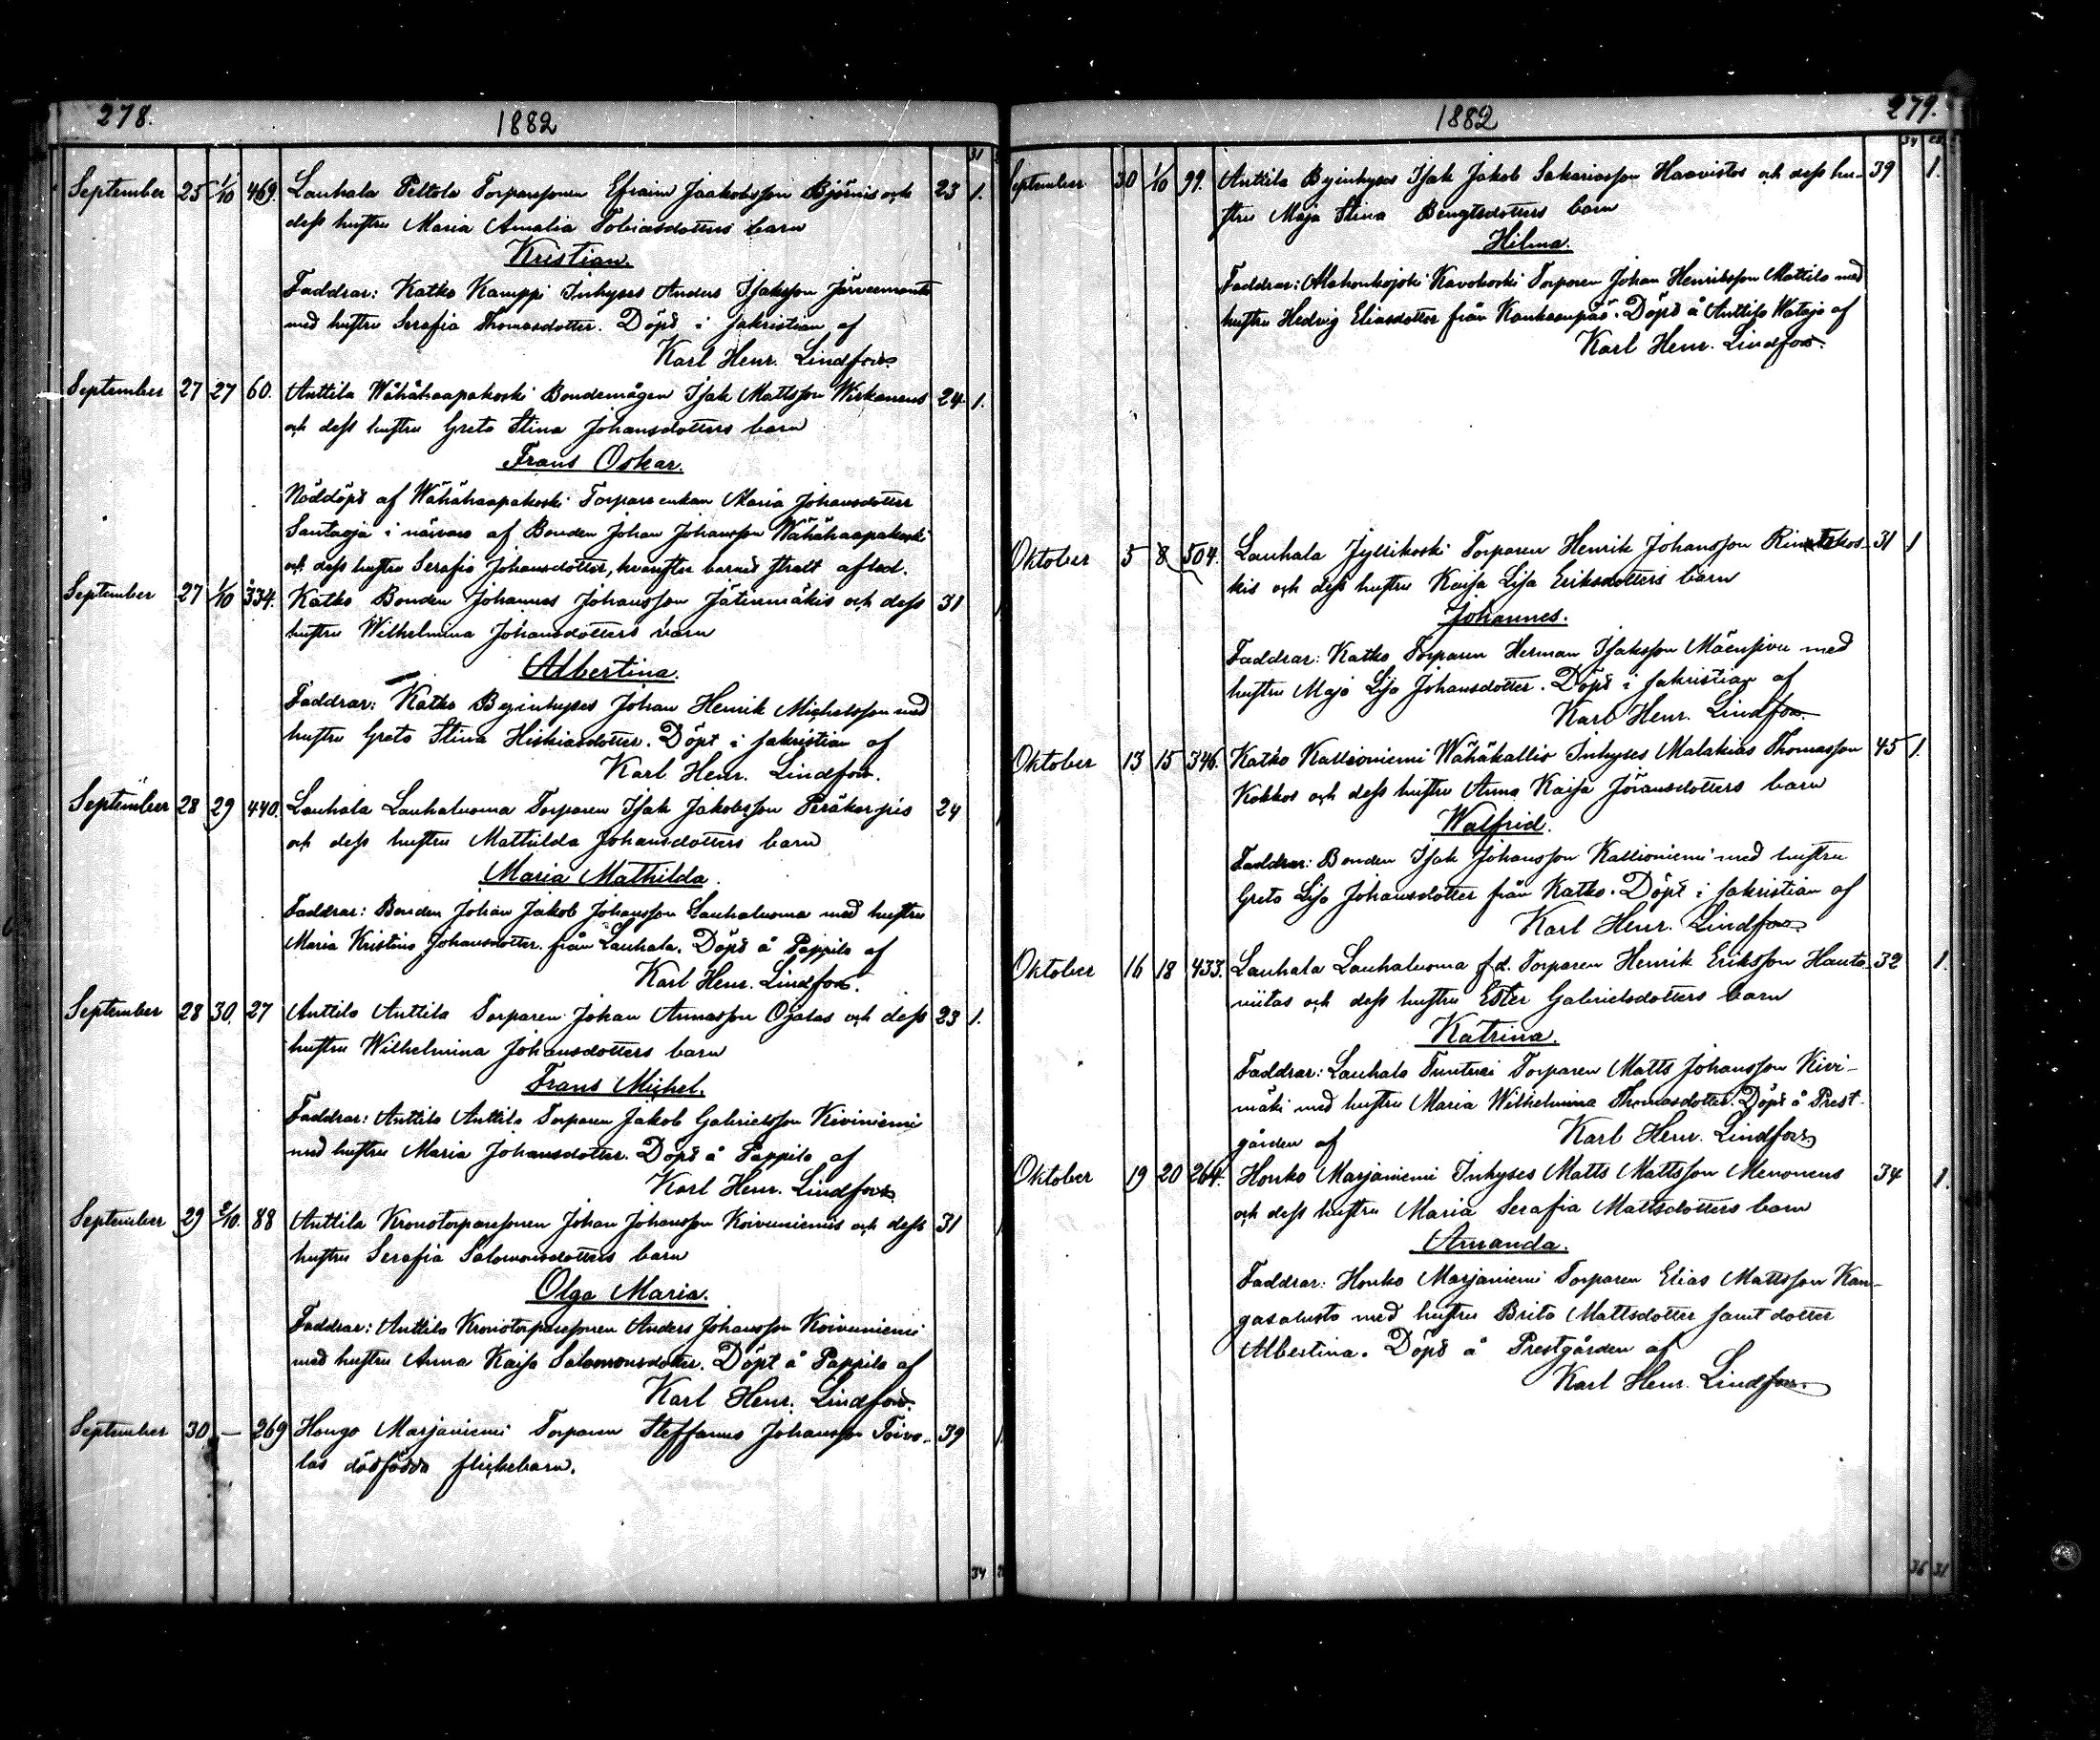 278.
1882
31
September 25 1/10 469. Lauhala Peltola Torparsonen Efraim Jaakobsson Björnis och 23 1.
dess hustru Maria Amalia Tobiasdotters barn
Kristian.
Faddrar: Katko Kamppi Inhyses Anders Isaksson
med hustru Serafia Thomasdotter. Döpt i sakristian af
Karl Henr. Lindfors.
September 27 27 60. Anttila Wähähaapakoski Bondemågen Isak Mattsson Wiskanens 24 1.
och dess hustru Greta Stina Johansdotters barn
Frans Oskar.
Nöddöpt af Wähähaapakoski Torpareenkan Maria Johansdotter
Santaoja i närvaro af Bonden Johan Johansson Wähähaapakoski
och dess hustru Serafia Johansdotter, hvarefter barnet straxt afled.
September 27 1/10 334. Katko Bonden Johannes Johansson Jätinmäkis och dess 31
hustru Wilhelmina Johansdotters barn
Albertina.
Faddrar: Katko Byinhyses Johan Henrik Michelsson med
hustru Greta Stina Hiskiasdotter. Döpt i sakristian af
Karl Henr. Lindfors.
September 28 29 440. Lauhala Lauhaluoma Torparen Isak Jakobsson Peräkorpis 24
och dess hustru Mathilda Johansdotters barn
Maria Mathilda.
Faddrar: Bonden Johan Jakob Johansson Lauhaluoma med hustru
Maria Kristina Johansdotter. från Lauhala. Döpt å Pappila af
Karl Henr. Lindfors.
September 28 30. 27 Anttila Anttila Torparen Johan Annasson Ojalas och dess 23 1.
hustru Wilhelmina Johansdotters barn
Frans Michel.
Faddrar: Anttila Anttila Torparen Jakob Gabrielsson Kiviniemi
med hustru Maria Johansdotter. Döpt å Pappila af
Karl Henr. Lindfors
September 29 2/10. 88 Anttila Kronotorparesonen Johan Johansson Koivuniemis och dess 31
hustru Serafia Salomonsdotters barn
Olga Maria.
Faddrar: Anttila Kronotorparesonen Anders Johansson Koivuniemi
med hustru Anna Kaisa Salomonsdotter. Döpt å Pappila af
Karl Henr. Lindfors.
September 30 — 269 Hongo Marjaniemi Torparen Steffanus Johansson Toivo- 39 1.
las dödfödda flickebarn.
34
279.
1882
34
September 30 1/10 99. Anttila Byinhyses Isak Jakob Sakariasson Haavistos och dess hu- 39 1.
stru Maja Stina Bengtsdotters barn
Hilma.
Faddrar: Kavokoski Torparen Johan Henriksson Mattila med
hustru Hedvig Eliasdotter från Kauhasupää. Döpt å Anttila af
Karl Henr. Lindfors.
Oktober 5 8 504. Lauhala Jyllikoski Torparen Henrik Johansson 31 1
kis och dess hustru Kaisa Lisa Eriksdotters barn
Johannes.
Faddrar: Katko Torparen Herman Isaksson Mäensivu med
hustru Maja Lisa Johansdotter. Döpt i sakristian af
Karl Henr. Lindfors.
Oktober 13 15 346. Katko Kallioniemi Wähäkallio Inhyses Malakias Thomasson 45 1.
Kokkos och dess hustru Anna Kaisa Jöransdotters barn
Walfrid.
Faddrar: Bonden Isak Johansson Kallioniemi med hustru
Greta Lisa Johansdotter från Katko. Döpt i sakristian af
Karl Henr. Lindfors
Oktober 16 18 433. Lauhala Lauhaluoma f.d. Torparen Henrik Eriksson Hauta- 32 1.
viitas och dess hustru Ester Gabrielsdotters barn
Katrina.
Faddrar: Lauhala Tunturi Torparen Matts Johansson Kivi-
mäki med hustru Maria Wilhelmina Thomasdotter. Döpt å Prest-
gården af Karl Henr. Lindfors
Oktober 19 20 264. Honko Marjaniemi Inhyses Matts Mattsson Menonens 34 1.
och dess hustru Maria Serafia Mattsdotters barn
Amanda.
Faddrar: Honko Marjaniemi Torparen Elias Mattsson Kan-
gasalusta med hustru Brita Mattsdotter samt dotter
Albertina. Döpt å Prestgården af
Karl Henr. Lindfors.
36 31